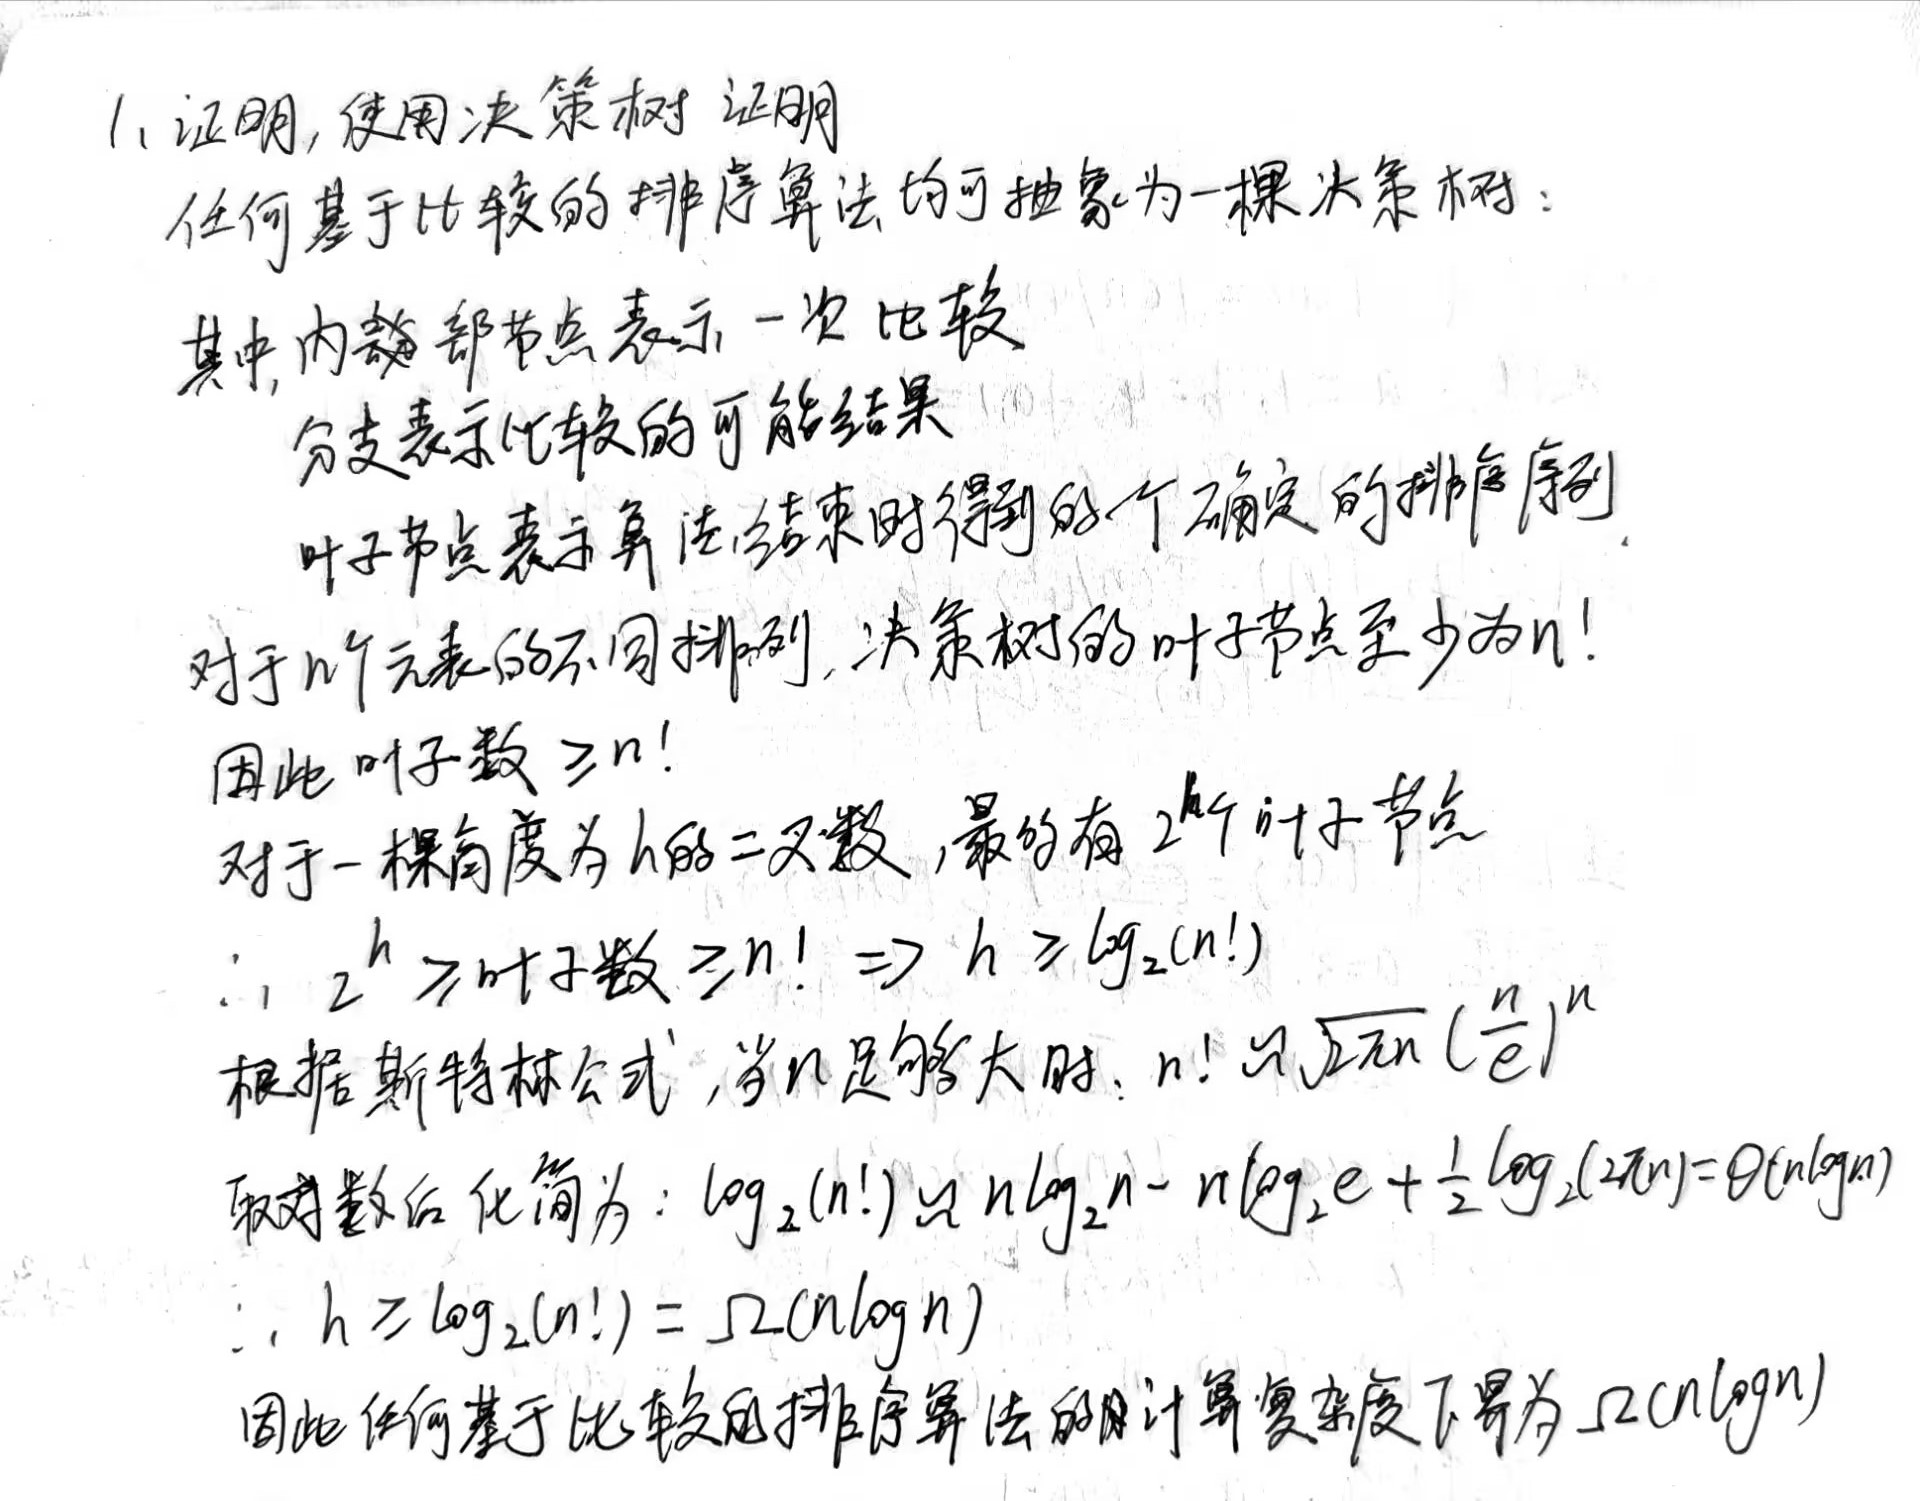 1、证明,使用决策树证明
任何基于比较的排序算法均可抽象为一棵决策树:
其中,内部节点表示一次比较
分支表示比较的可能结果
叶子节点表示算法结束时得到的个确定的排序序列.
对于n个元表的不同排列,决策树的叶子节点至少为n!
因此叶子数≥n!
对于一棵高度为h的二叉数,最多有2^h个叶子节点
∴ 2^h ≥叶子数≥n! => h ≥ log₂(n!)
根据斯特林公式,当n足够大时:n! ≈ √(2πn) (n/e)^n
取对数后化简为:log₂(n!) ≈ nlog₂n - nlog₂e + ½log₂(2πn) = Θ(nlogn)
∴ h ≥ log₂(n!) = Ω(nlogn)
因此任何基于比较的排序算法的计算复杂度下界为Ω(nlogn)